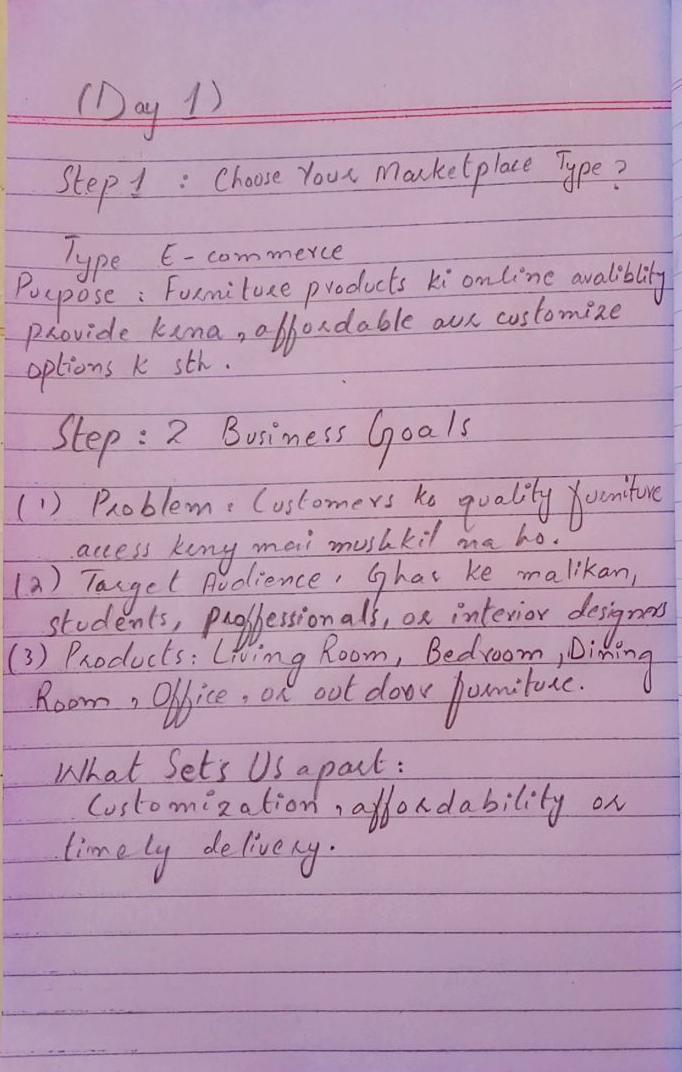 (Day 1)
Step 1 : Choose Your Marketplace Type?
Type E-commerce
Purpose : Furniture products ki online avaliblity
provide krna, affordable aur customize
options k sth.
Step : 2 Business Goals
(1) Problem : Customers ko quality furniture
access krny mai mushkil na ho.
(2) Target Audience, Ghar ke malikan,
students, proffessionals, or interior designers
(3) Products : Living Room, Bedroom, Dining
Room, Office, or out door furniture.
What Set's Us apart :
Customization, affordability or
timely delivery.